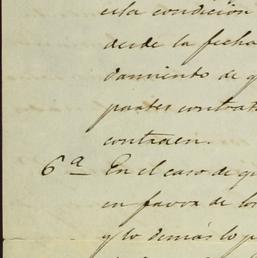 esta condición
desde la fecha
damiento de q
partes contrat
contraen.
6ª En el caso de qu
en favor de los
y lo demás lo p